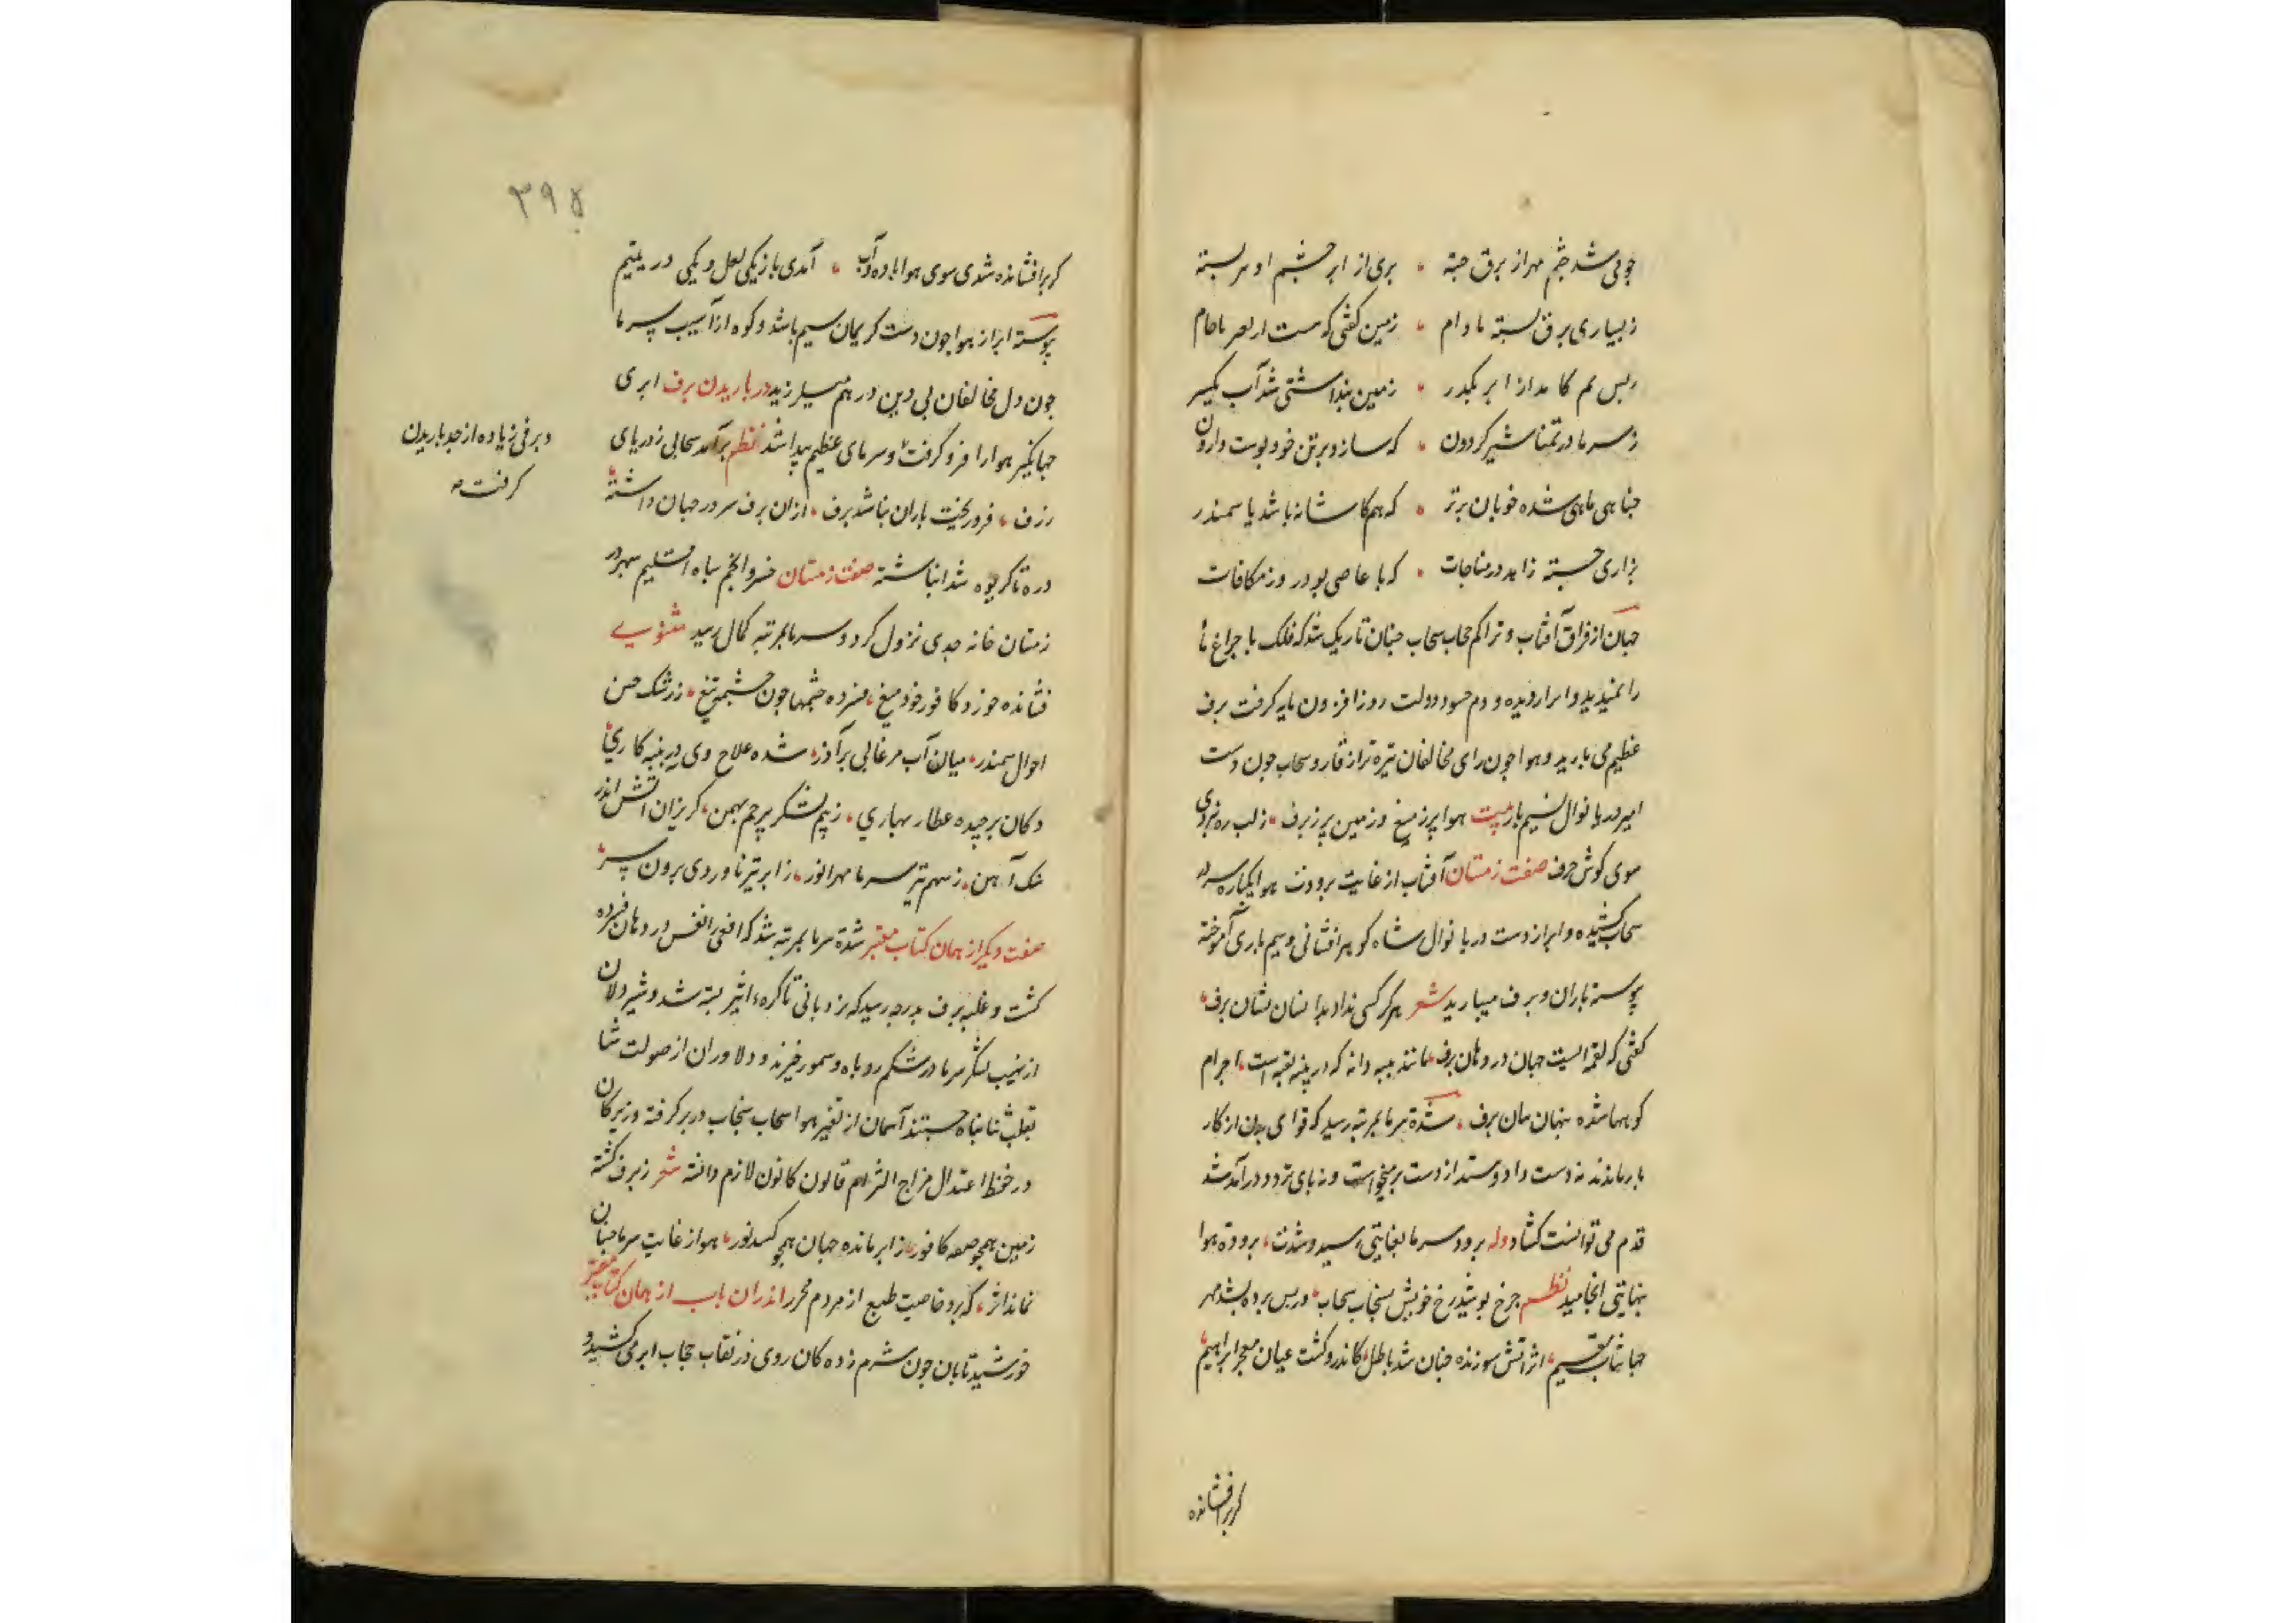 چو می شد چشم مهر از برق جسته ، بری از ابر چشم او سر بسته
ز بسیاری برق بسته مادام ، زمین گفتی که است از
زمین پنداشتی شد آب یکسر
ز سرما در تمنا شیر گردون ، که سازد بر تن خود پوست وارون
چنا هی ماهی شده خوبان برتر ، که هم کاشانه باشد با سمندر
بزاری جسته زاهد در مناجات ، که با عاصی بود روز مکافات
جهان از فراق آفتاب و تراکم حجاب سحاب چنان تاریک شد که فلک با چراغ ما
را نمیدید و ابر از دیده و دم حسود دولت روز افزون مایه گرفت برف
عظیم می بارید و هوا چون رای مخالفان تیره تر از قار و سحاب چون دست
امیر دریا نوال نسیم بار بیت هوا پر ز میغ و زمین پر ز برف ، ز لب ره نبردی
سوی گوش حرف صفت زمستان آفتاب از غایت برودت هوا یکباره سر در
سحاب کشیده و ابر از دست دریا نوال شاه گوهر افشانی و سیم باری آموخته
پیوسته باران و برف میبارید شعر هرگز کسی نداد بدانسان نشان برف ،
گفتی که لقمه ایست جهان در دهان برف ، مانند پنبه دانه که در پنبه تعبیه است ، اجرام
کوهها شده پنهان میان برف ، شدة سرما بمرتبه رسید که قوای بدن از کار
باز ماندند نه دست داد و ستد از دست بر میخواست و نه پای تردد در آمد شد
قدم می توانست گشاد وله برودت سرما بغایتی رسید و شدت ، برودة هوا
بنهایتی انجامید نظم چرخ پوشید رخ خویش بسنجاب سحاب ، در پس پرده بشد مهر
جهانتاب مقیم ، اثر آتش سوزنده چنان شد باطل ، کاندرو گشت عیان معجز ابراهیم ،
گر بر افشانده
۳۹۵
گر بر افشانده شدی سوی هوا باده و آب ، آمدی باز یکی لعل و یکی در یتیم
پیوسته ابر از هوا چون دست کریمان سیم باشد و کوه از آسیب سرما
چون دل مخالفان بی دین در هم میلرزید در باریدن برف ابری
جهانگیر هوا را فرو گرفت و سرمای عظیم پیدا شد نظم بر آمد سحابی ز دریای
ژرف ، فرو ریخت باران بناشد برف ، از آن برف سر در جهان داشته ،
دره تا گریوه شد انباشته صفت زمستان خسرو انجم سپاه اقلیم سپهر در
زمستان خانه جدی نزول کرد و سرما بمرتبه کمال رسید مثنوی
فشانده خورد کافور خود میغ ، فسرده چشمها چون چشمه تیغ ، ز رشک حسن
احوال سمندر ، میان آب مرغابی بر آذر ، شده علاج وی در پنبه کاری ،
دکان برچیده عطار بهاری ، ز بیم لشکر پرچم بهمن ، گریزان آتش اندر
سنگ و آهن ، ز سهم تیر سرما مهر انور ، ز ابر تیره ناوردی برون سر ،
صفت دیگر از همان کتاب معتبر شدة سرما بمرتبه شد که افعی را نفس در دهان فسرده
گشت و غلبه برف بدرجه رسید که نردبانی تا کره اثیر بسته شد و شیر دلان
از نهیب لشکر سرما در شکم روباه و سمور خزیدند و دلاوران از صولت شتا
بقلب شتا پناه جستند آسمان از تغیر هوا سحاب سنجاب در بر گرفته و زیرکان
در حفظ اعتدال مزاج التزام قانون کانون لازم دانسته شعر ز برف گشته
زمین همچو صفه کافور ، ز ابر مانده جهان همچو کسد نور ، هوا از غایت سرما چنان
نماند اثر ، که برد خاصیت طبع از مردم محرر اندران باب از همان کتاب معتبر
خورشید تابان چون شرم زده کان روی در نقاب حجاب ابر می کشید و
و برفی زیاده از حد باریدن
گرفت صح